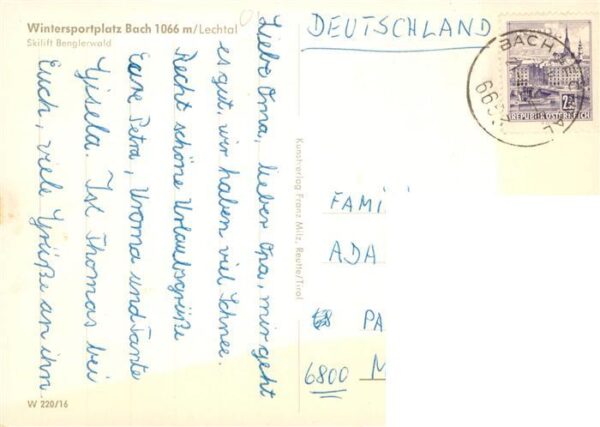 Wintersportplatz Bach 1066 m/Lechtal
Skilift Benglerwald
Liebe Oma, lieber Opa, mir geht
es gut, wir haben viel Schnee.
Recht schöne Urlaubsgrüße
Eure Petra, Uroma und Tante
Gisela. Ist Thomas bei
Euch, viele Grüße an ihn.
W 220/16
Kunstverlag Franz Milz, Reutte/Tirol
DEUTSCHLAND
BACH
6653
REPUBLIK ÖSTERREICH
FAMI
ADA
PA
6800 M